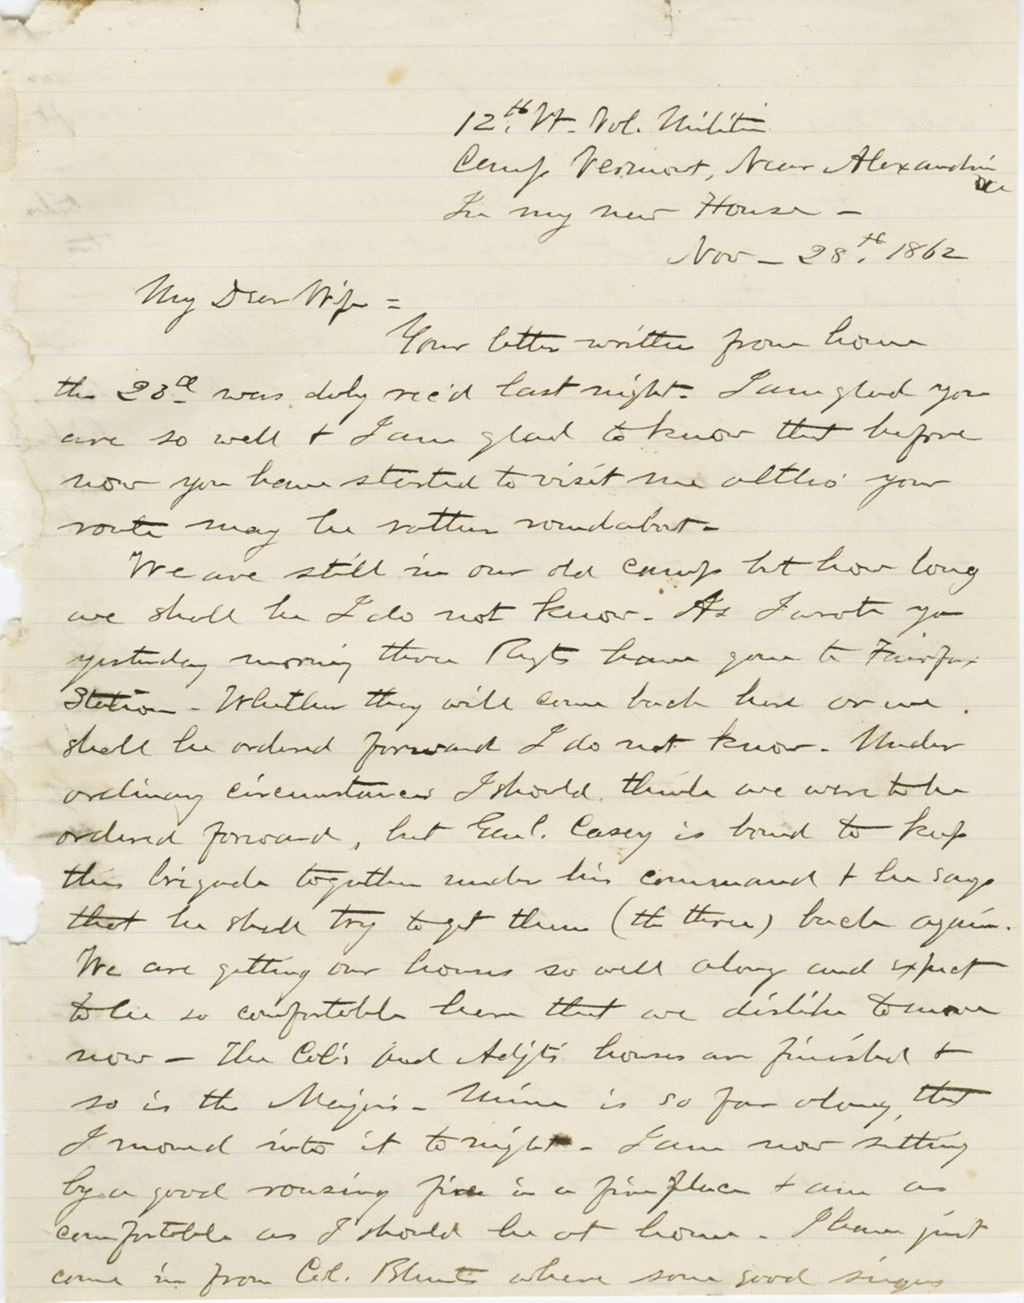 12th. Vt. Vol. Militia
Camp Vermont, Near Alexandria
Va
In my new House -
Nov - 28th. 1862
My Dear Wife =
Your letter written from home
the 23rd was duly rec'd last night. I am glad you
are so well & I am glad to know that before
now you have started to visit me altho' your
route may be rather roundabout -
We are still in our old camp but how long
we shall be I do not know. As I wrote you
yesterday morning three Regts have gone to Fairfax
Station - Whether they will come back here or we
shall be ordered forward I do not know. Under
ordinary circumstances I should think we were to be
ordered forward, but Genl. Casey is bound to keep
this brigade together under his command & he says
that he shall try to get them (the three) back again.
We are getting our houses so well along and expect
to be so comfortable here that we dislike to move
now - The Col's and Adjt's houses are finished &
so is the Majors - Mine is so far along, that
I moved into it to night - I am now sitting
by a good rousing fire in a fire place & am as
comfortable as I should be at home. I have just
come in from Col. Blunts where some good singers